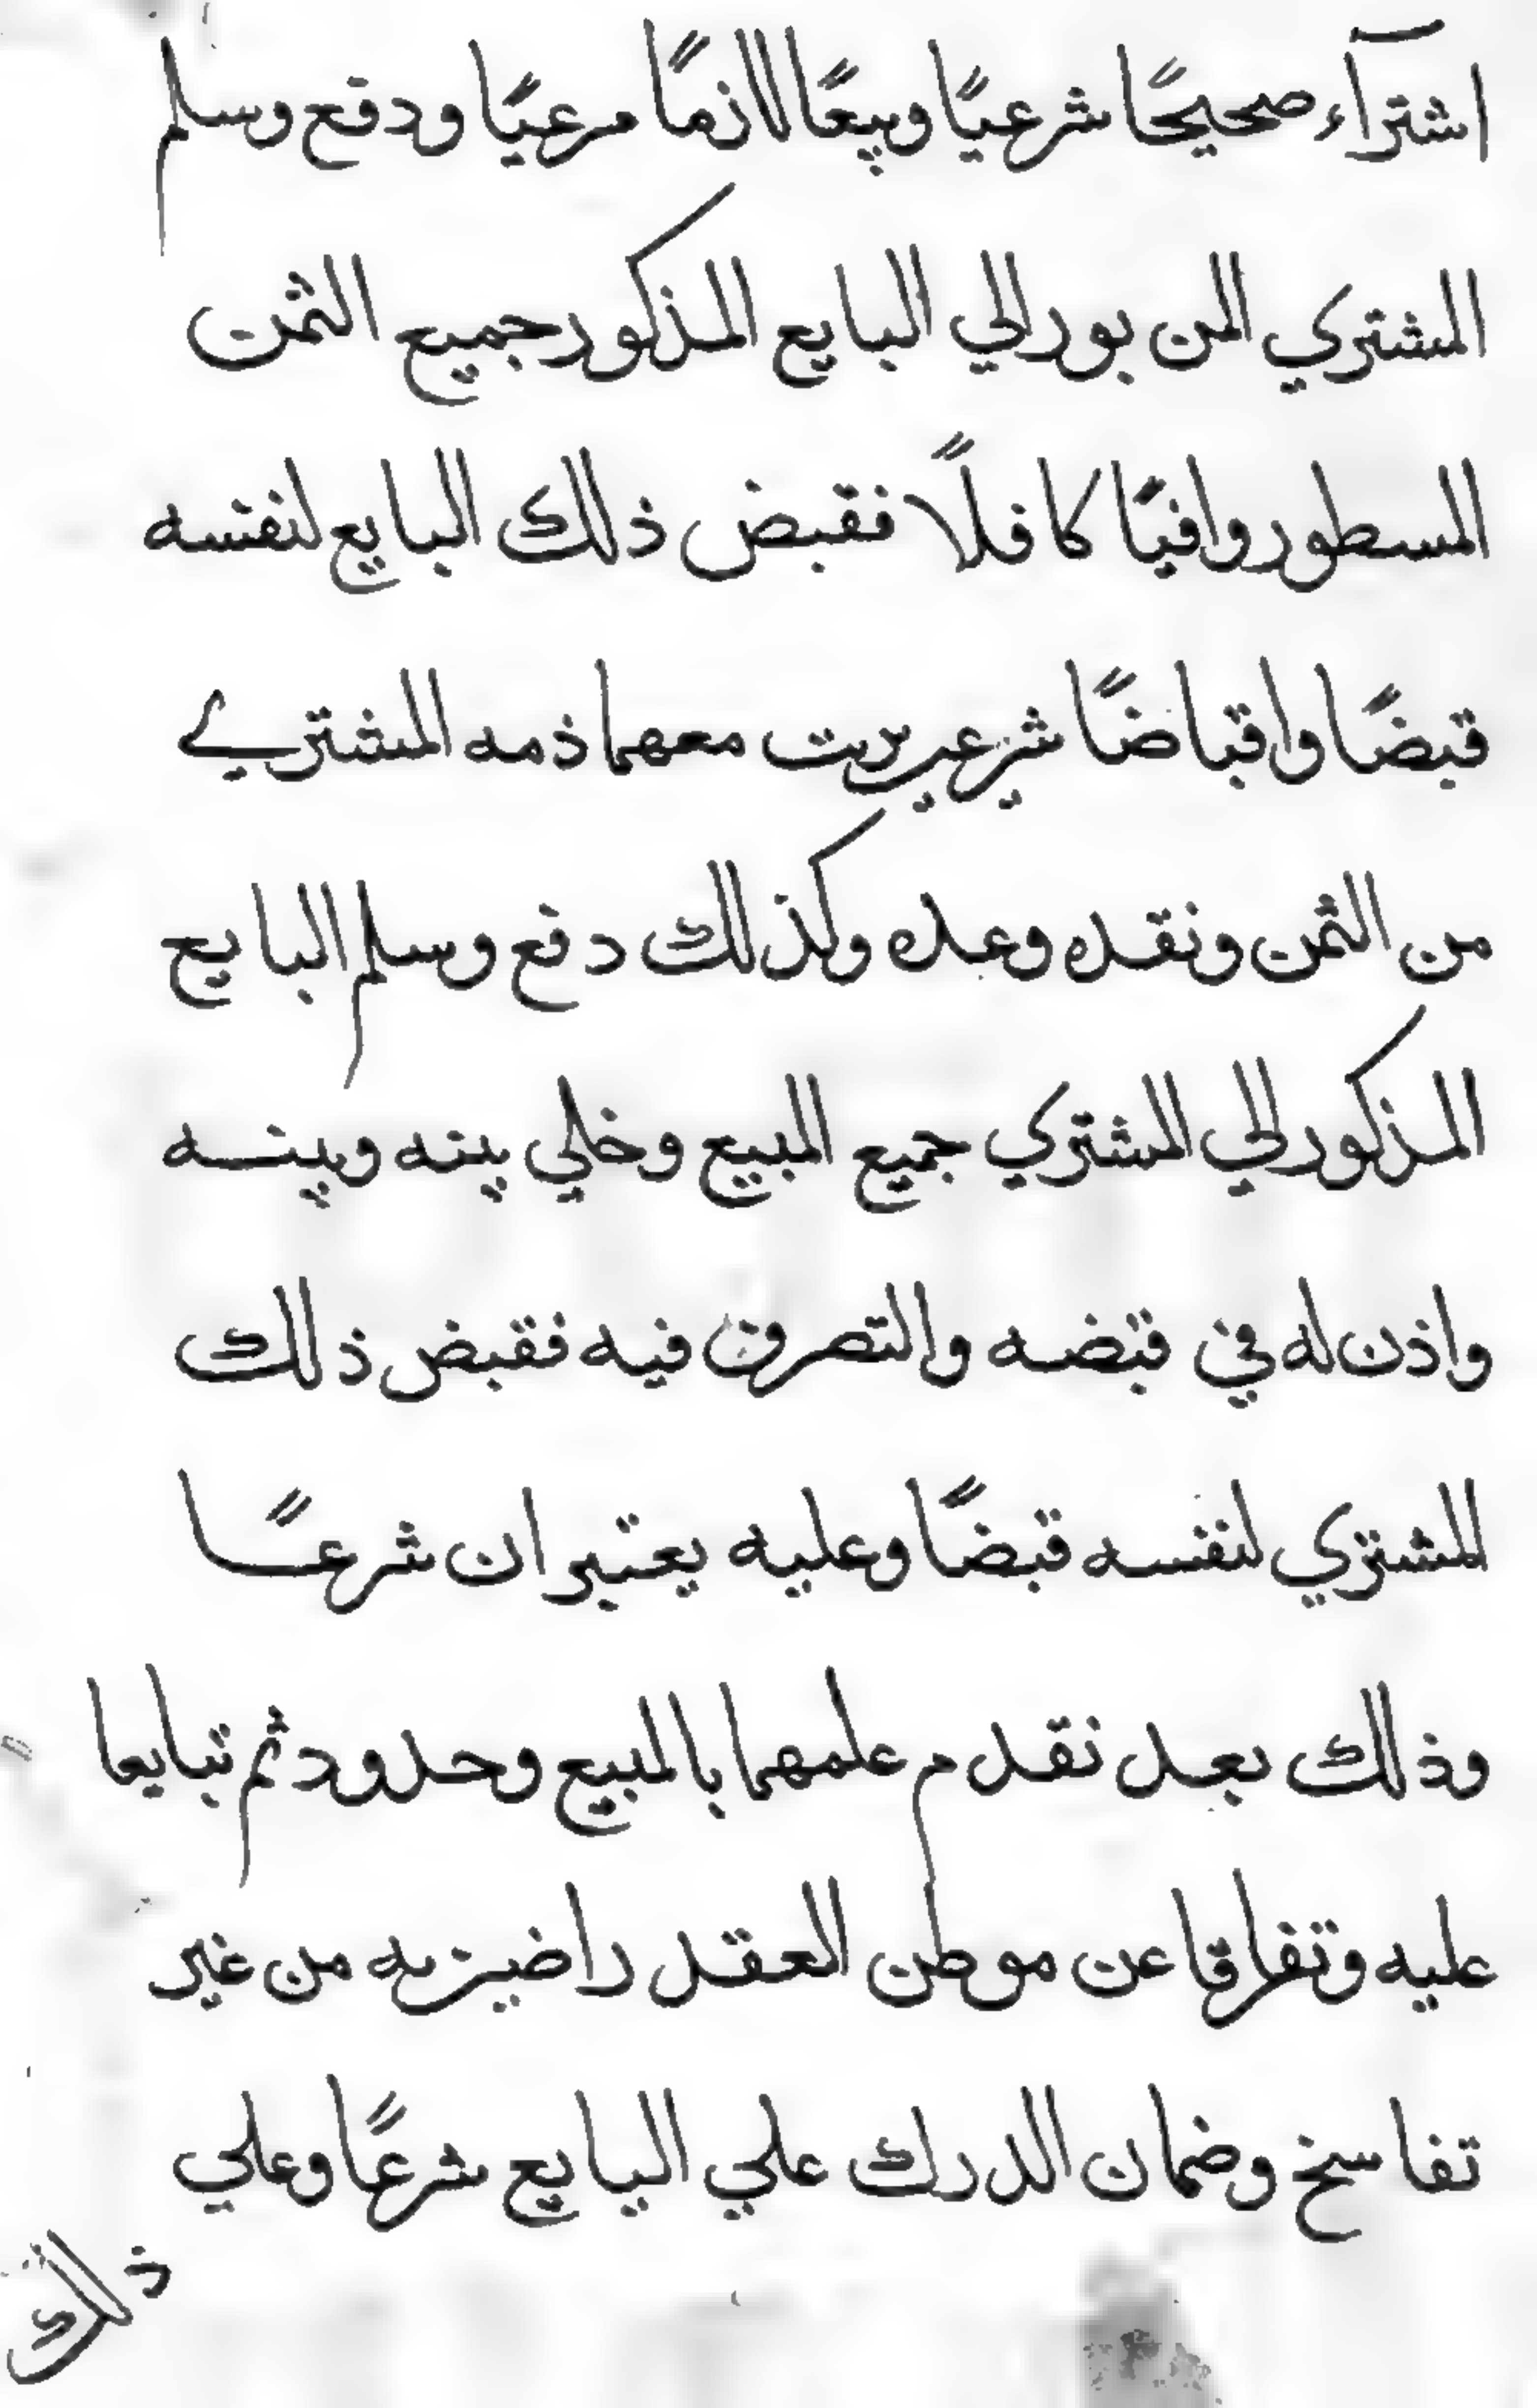 اشترآء صحيحًا شرعيًا وبيعًا لازمًا مرعيًا ودفع وسلم
المشتري المزبور الي البايع المذكور جميع الثمن
المسطور وافيًا كافلًا فقبض ذلك البايع لنفسه
قبضًا واقباضًا شرعيين برىت معهما ذمه المشتري
من الثمن ونقده وعده وكذلك دفع وسلم البايع
المذكور الي المشتري جميع المبيع وخلي بينه وبينه
واذن له في قبضه والتصرف فيه فقبض ذلك
المشتري لنفسه قبضًا وعليه يعتبران شرعًا
وذلك بعد تقدم علمهما بالمبيع وحدود ثم تبايعا
عليه وتفارقا عن موطن العقد راضيين به من غير
تفاسخ وضمان الدرك علي البايع شرعًا وعلي
ذلك